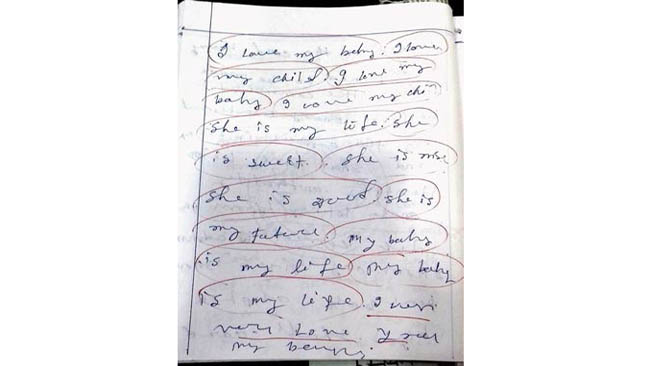 I love my baby. I love
my child. I love my
baby I love my chi
she is my life. she
is sweet. she is nise
she is good. she is
my future. my baby
is my life my baby
is my life. I veri
very Love
my